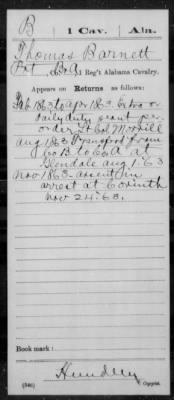 B | 1 Cav. | Ala.
Thomas Barnett
Pvt., Co. A, 1 Reg't Alabama Cavalry.
Appears on Returns as follows:
Feb 1863 to Apr 1863 extra or
daily duty, per
order Lt Col Morrill
Aug 1863 Transferred from
Co B to Co A at
Glendale Aug 1 63
Nov 1863 absent in
arrest at Corinth
Nov 24 63.
Book mark:
(546) Copyist.